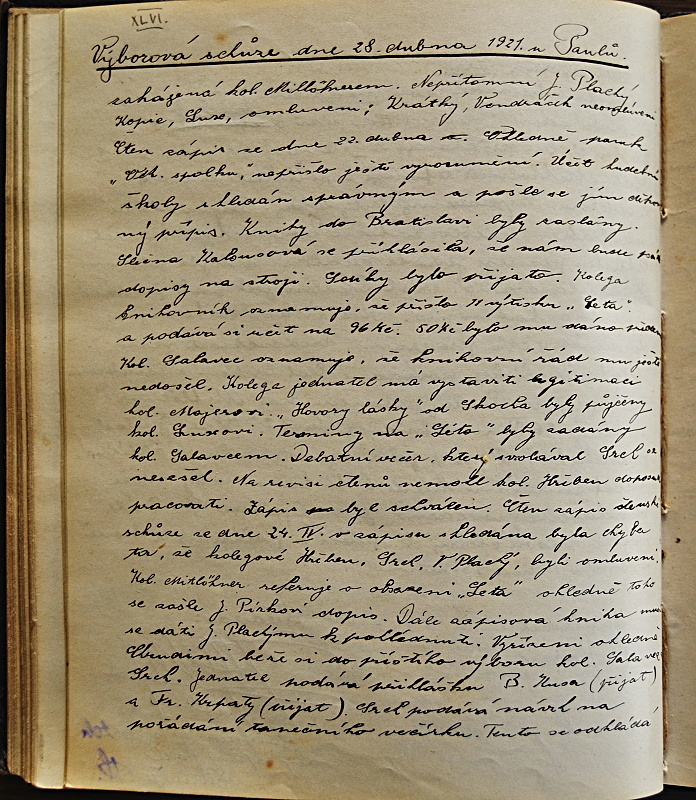 XLVI.
Výborová schůze dne 28. dubna 1921. u Paulů.
zahájená kol. Mitlöhnerem. Nepřítomní J. Plachý,
Kopic, Lux, omluveni; Krátký, Vondráček neomluveni
Čten zápis ze dne 22. dubna Ohledně
"Vět. spolku," nepřišlo ještě vyrozumění. Účet hudební
školy shledán správným a pošle se jim
ný přípis. Knihy do Bratislavi byly zaslány.
Slečna Kalousová se přihlásila, že nám bude
dopisy na stroji. S díky bylo přijato. Kolega
knihovník oznamuje, že přišlo 11 výtisku "Leta".
a podává si účet na 96 Kč. 50 Kč bylo mu dáno
Kol. Salavec oznamuje, že knihovní řád mu ještě
nedošel. Kolega jednatel má vystaviti legitimaci
kol. Majerovi. "Hovory lásky" od Skocha byly půjčeny
kol. Luxovi. Termíny na "Léto" byly zadány
kol. Salavcem. Debatní večer, který svolával Srel se
nesešel. Na revisi členů nemohl kol. Hřiben
pracovati. Zápis byl schválen. Čten zápis člensk
schůze ze dne 24. IV. v zápisu shledána byla chyba
ta, že kolegové Hřiben, Srel, V. Plachý, byli omluveni.
Kol. Mitlöhner referuje o obsazení "Leta" ohledně toho
se zašle J. Pirkovi dopis. Dále zápisová kniha
se dáti J. Plachýmu k pohlédnutí. Vyřízení ohledně
Chrudimi béře si do příštího výboru kol. Salavec
Srel. Jednatel podává přihlášku B. Kusa (přijat)
a Fr. Krpaty (přijat) Srel podává návrh na
pořádání tanečního večírku. Tento se odkládá